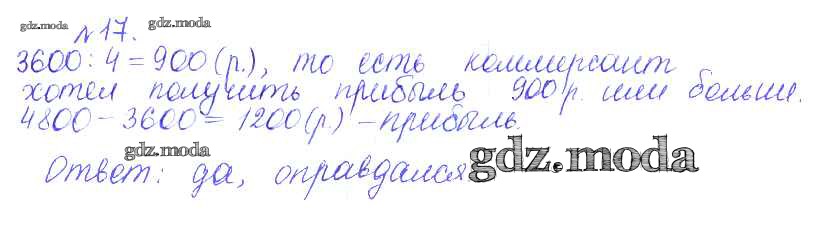 gdz.moda №17. gdz.moda
3600:4=900(р.), то есть коммерсант
хотел получить прибыль 900р. или больше.
4800-3600=1200(р.)-прибыль.
gdz.moda
Ответ: да, оправдался gdz.moda